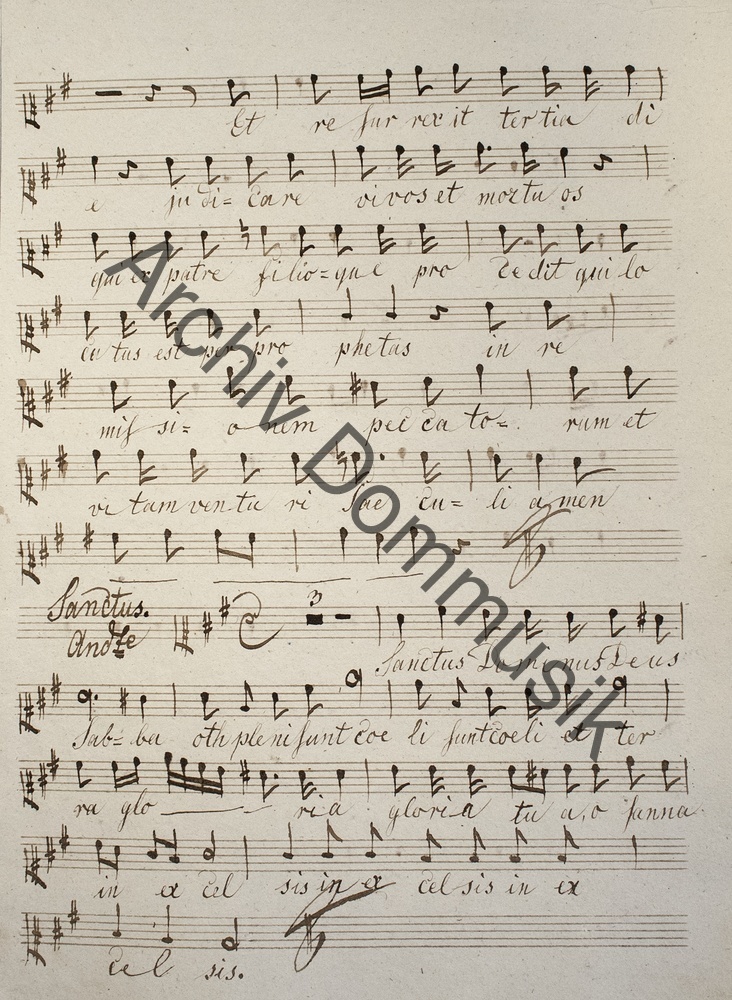 Et re sur rex it ter tia di
e ju di= ca re vi vos et mortu os
qui ex patre filio=que pro ce dit qui lo
cu tus est per pro phetas in re
mis si= o nem pec ca to= rum et
vi tam ven tu ri sae cu= li a men
Sanctus. 3
And:te
Sanctus Dominus Deus
Sab= ba oth pleni sunt coe li sunt coeli et ter
ra glo ria gloria tu a, o sanna
in ex cel sis in ex cel sis in ex
cel sis.
Archiv Dommusik